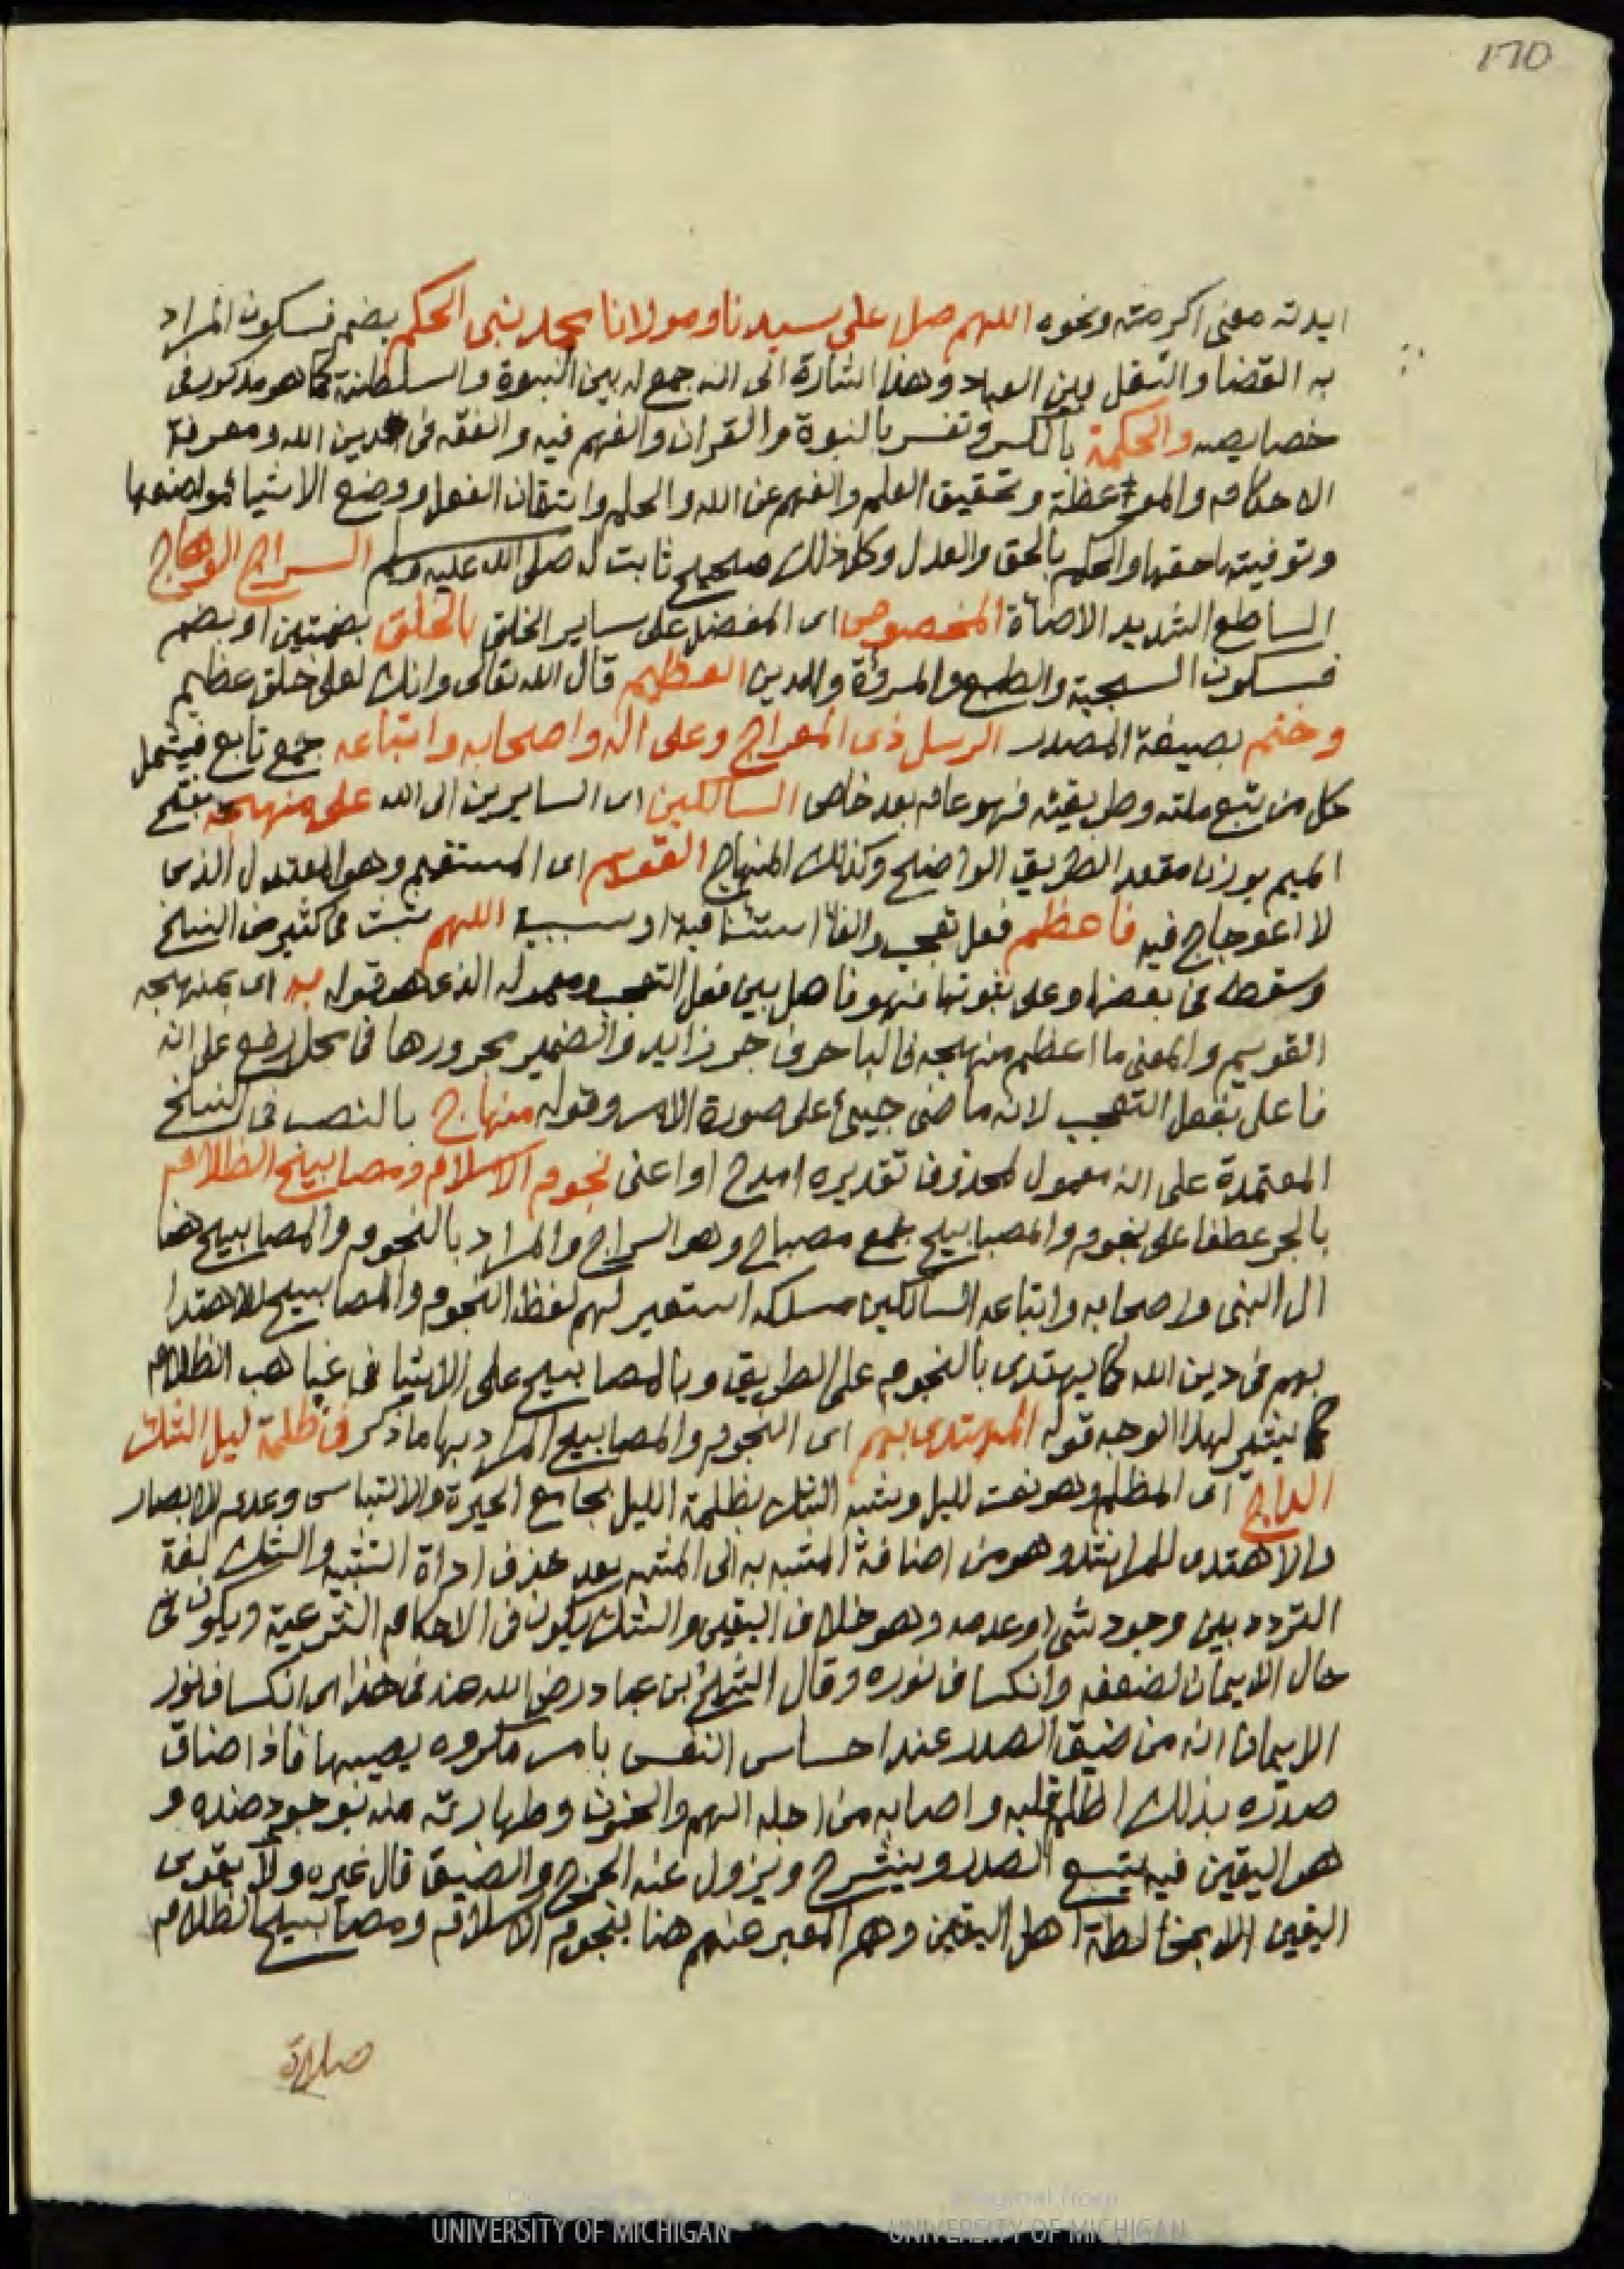 170
ايدته معنى اكرمته ونحوه اللهم صل على سيدنا ومولانا محمد نبى الحكم بضم فسكون المراد
به القضا والفصل بين العباد وهذا اشارة الى انه جمع له بين النبوة والسلطنة كما هو مذكور فى
خصايصه والحكمة بالكسر وتفسر بالنبوة والقران والفهم فيه والفقه فى دين الله ومعرفة
الاحكام والموعظة وتحقيق العلم والفهم عن الله والحلم واتقان الفعل ووضع الاشيا مواضعها
وتوفيتها حقها والحكم بالحق والعدل وكل ذلك صحيح ثابت له صلى الله عليه وسلم السراج الوهاج
الساطع الشديد الاضاة المخصوص اى المفضل على ساير الخلق بالخلق بضمتين او بضم
فسكون السجية والطبع والمروة والدين العظيم قال الله تعالى وانك لعلى خلق عظيم
وختم بصيغة المصدر الرسل ذى المعراج وعلى اله واصحابه واتباعه جمع تابع فيشمل
كل من تبع ملته وطريقته فهو عام بعد خاص السالكين اى السايرين الى الله على منهجه بفتح
الميم بوزن مقعد الطريق الواضح وكذلك المنهاج القويم اى المستقيم وهو المعتدل الذى
لا اعوجاج فيه فاعظم فعل تعجب والفا استئنافية او سببية اللهم ثبت فى كثير من النسخ
وسقط فى بعضها وعلى ثبوتها فهو فاصل بين فعل التعجب ومعموله الذى هو قوله به اى بمنهجه
القويم والمعنى ما اعظم منهجه فالبا حرف جر زايد والضمير مجرورها فى محل رفع على انه
فاعل بفعل التعجب لانه ماضى جيئ على صورة الامر وقوله منهاج بالنصب فى النسخ
المعتمدة على انه معمول لمحذوف تقديره امدح او اعنى نجوم الاسلام ومصابيح الظلام
بالجر عطفا على نجوم والمصابيح جمع مصباح وهو السراج والمراد بالنجوم والمصابيح هنا
ال النبى واصحابه واتباعه السالكين مسلكه استعير لهم لفظ النجوم والمصابيح للاهتدا
بهم فى دين الله كما يهتدى بالنجوم على الطريق وبالمصابيح على الاشيا فى غياهب الظلام
كما يشير لهذا الوجه قوله المهتدى بهم اى النجوم والمصابيح المراد بها ما ذكر فى ظلمة ليل الشك
الداج اى المظلم وهو نعت لليل وشبه الشك بظلمة الليل بجامع الحيرة والالتباس وعدم الابصار
والاهتدى وهو من اضافة المشبه به الى المشبه بعد حذف اداة التشبيه والشك لغة
التردد بين وجود شى وعدمه وهو خلاف اليقين والشك يكون فى الاحكام الشرعية ويكون فى
حال الايمان لضعفه وانكساف نوره وقال الشيخ ابن عباد رضى الله عنه فى هذا اى انكساف نور
الايمان انه من ضيق الصدر عند احساس النفس بامر مكروه يصيبها فاذا ضاق
صدره بذلك اظلم قلبه واصابه من اجله الهم والحزن وطهارته منه بوجود ضده و
هو اليقين فبه يتسع الصدر وينشرح ويزول عنه الحرج والضيق قال غيره ولا يقوى
اليقين الا بمخالطة اهل اليقين وهم المعبر عنهم هنا بنجوم الاسلام ومصابيح الظلام
صلاة
UNIVERSITY OF MICHIGAN
Original from
UNIVERSITY OF MICHIGAN